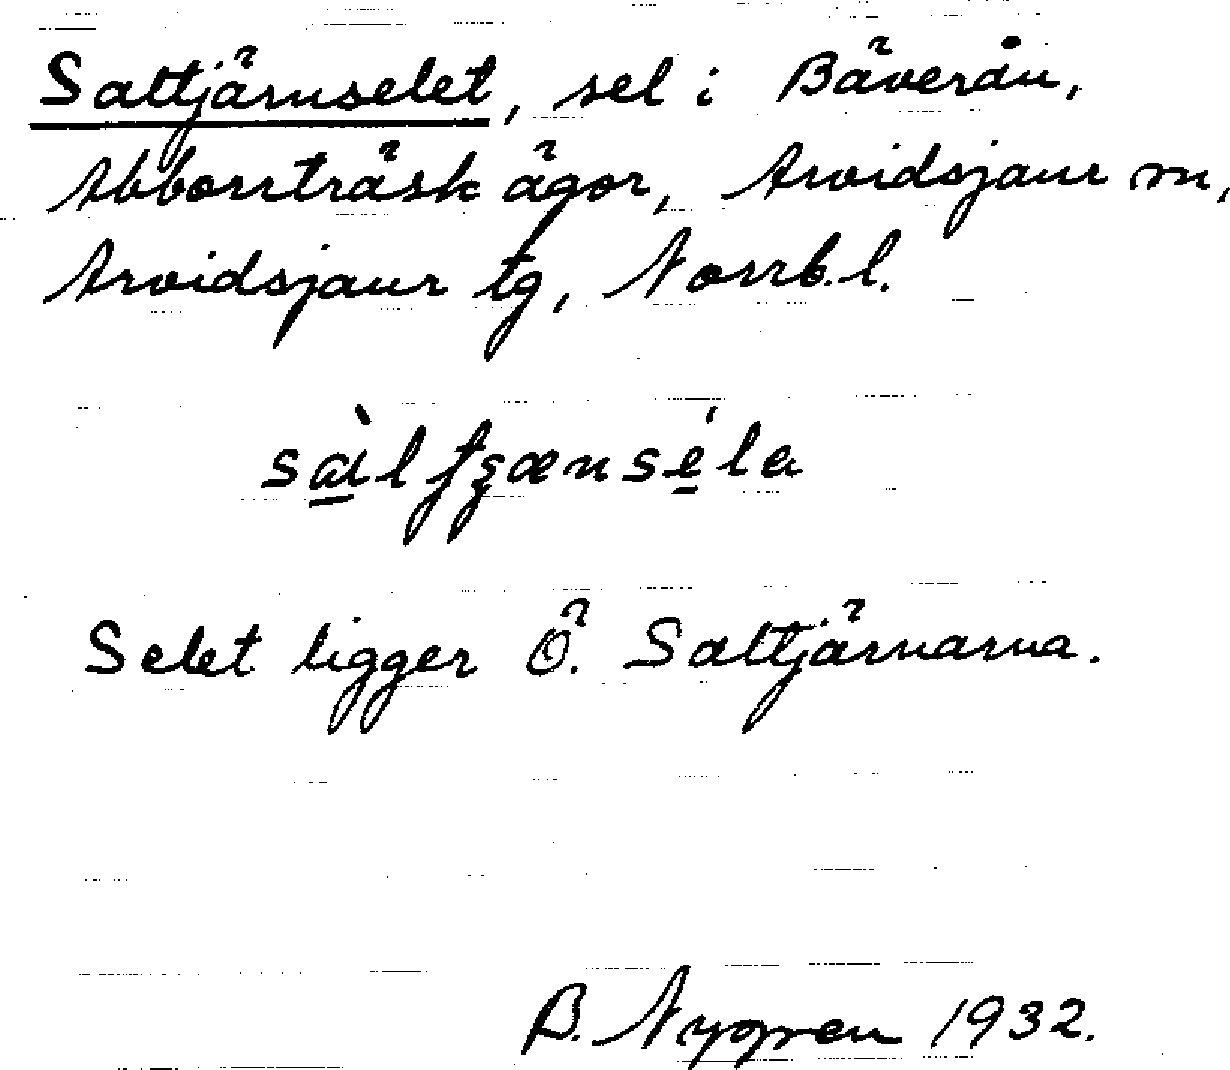 Saltjärnselet, sel i Bäverån,
Abborrträsk ägor, Arvidsjaur sn,
Arvidsjaur tg, Norrb. l.
Selet ligger Ö. Saltjärnarna.
B. Nygren 1932.